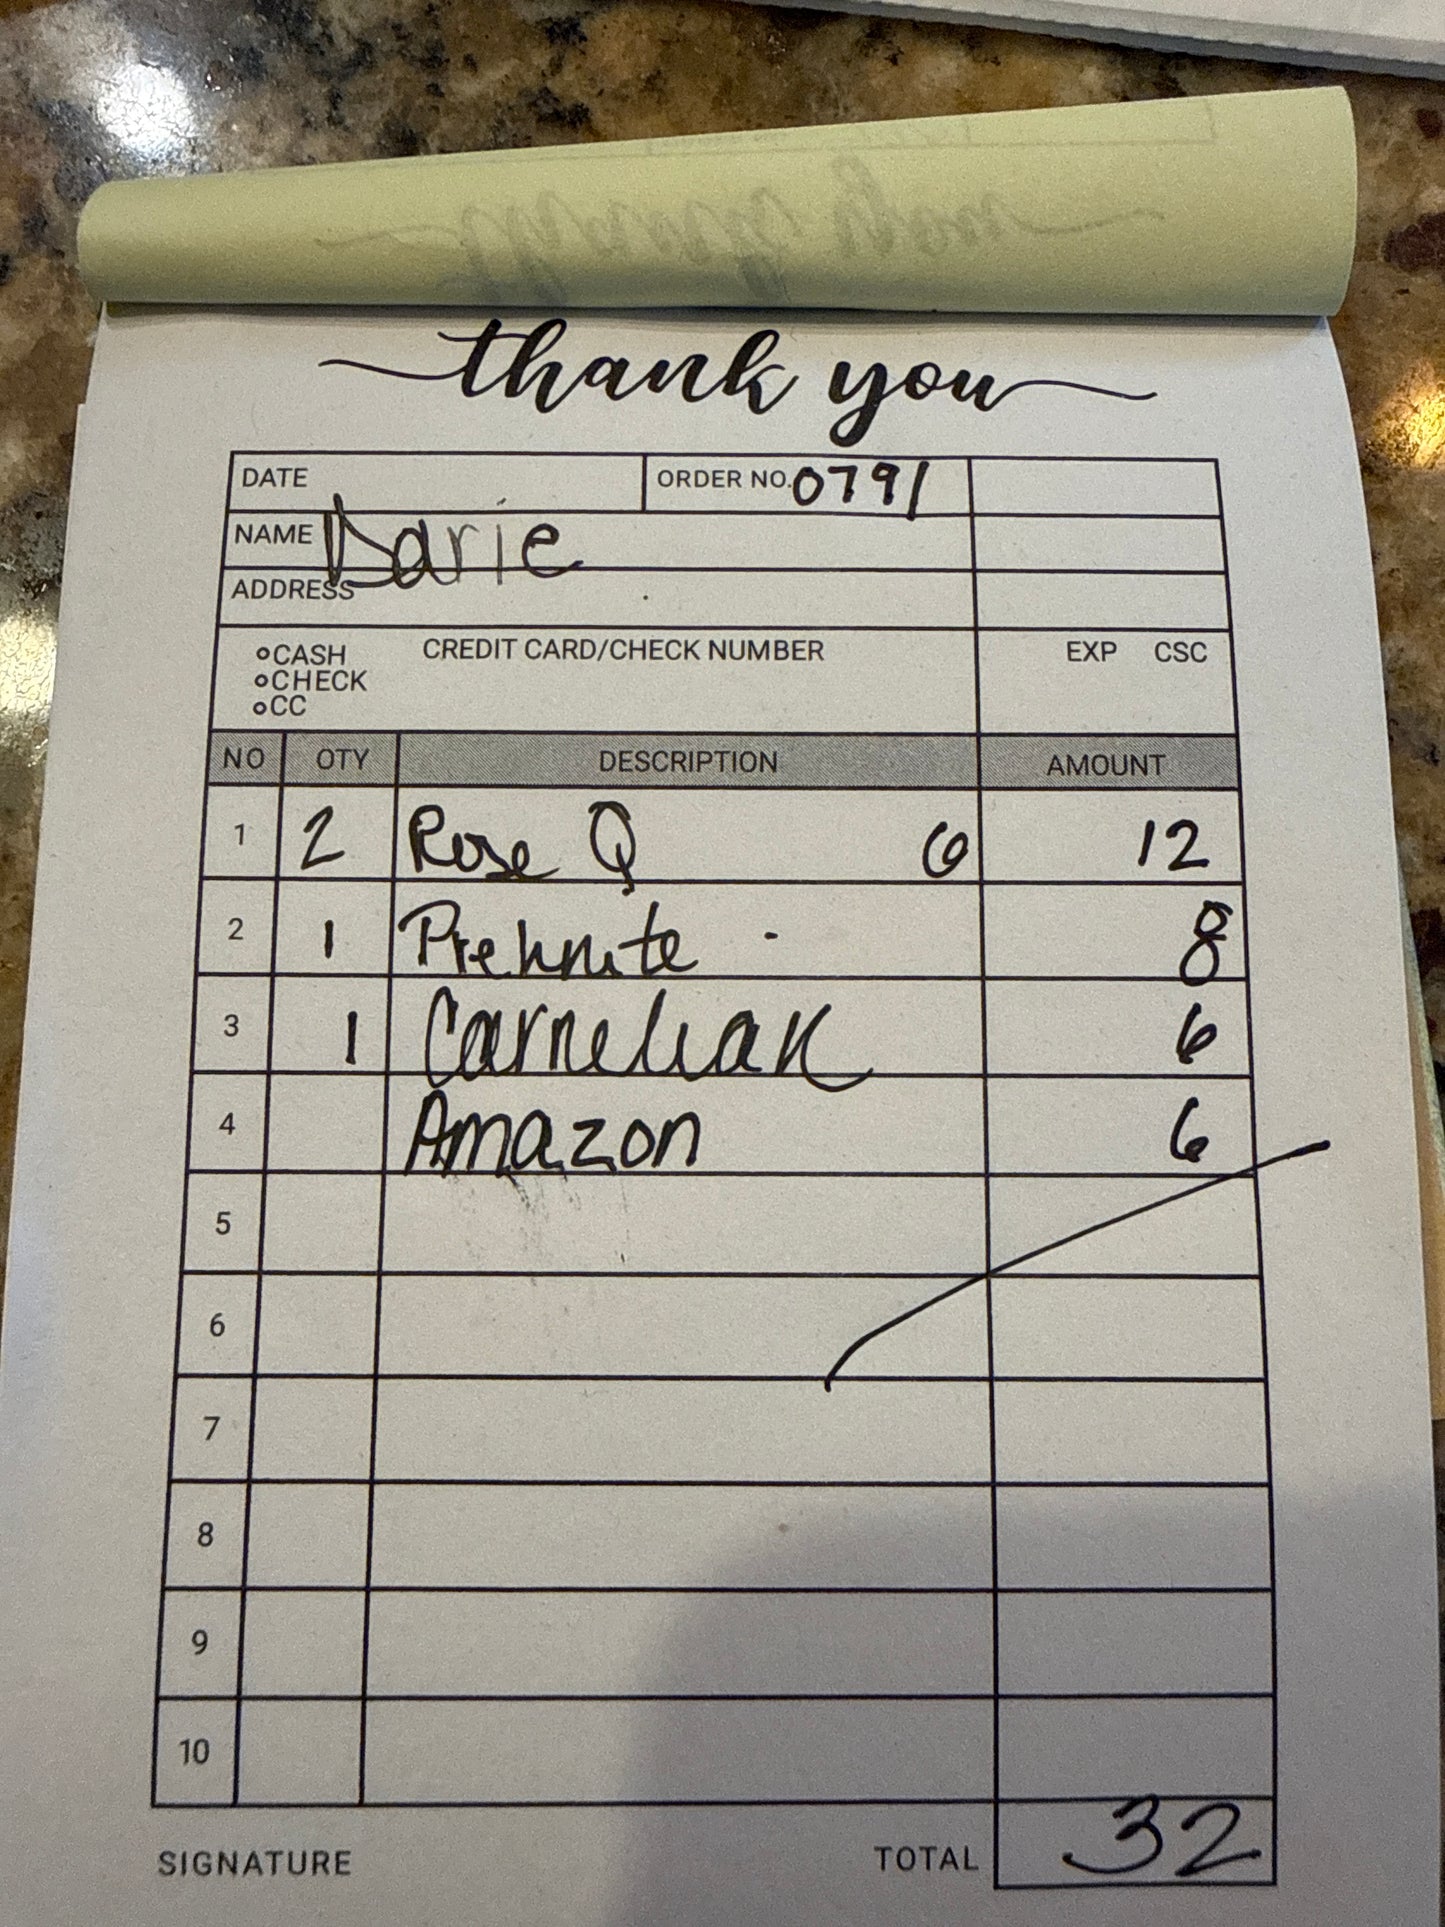 thank you
DATE ORDER NO. 0791
NAME Darie
ADDRESS
CASH CREDIT CARD/CHECK NUMBER EXP CSC
CHECK
CC
NO QTY DESCRIPTION AMOUNT
1 2 Rose Q 6 12
2 1 Prehnite - 8
3 1 Carnelian 6
4 Amazon 6
5
6
7
8
9
10
SIGNATURE TOTAL 32